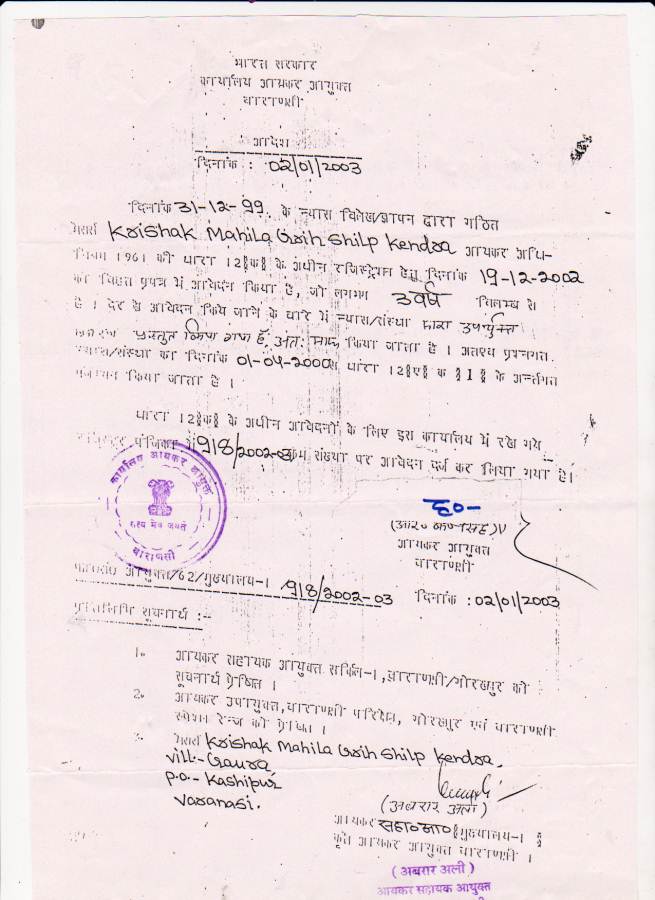 भारत सरकार
कार्यालय आयकर आयुक्त
वाराणसी
आदेश
दिनांक : 02/01/2003
दिनांक 31-12-99 के न्यास विलेख/ज्ञापन द्वारा गठित
मैसर्स Krishak Mahila Grih Shilp Kendra आयकर अधि-
नियम 1961 की धारा 12§क§ के अधीन रजिस्ट्रेशन हेतु दिनांक 19-12-2002
को विहित प्रपत्र में आवेदन किया है, जो लगभग 3 वर्ष विलम्ब से
है । देर से आवेदन किये जाने के बारे में न्यास/संस्था द्वारा उपर्युक्त
प्रस्तुत किया गया है, अतः माफ किया जाता है । अतएव प्रश्नगत
न्यास/संस्था का दिनांक 01-04-2000 से धारा 12§ए§ क §1§ के अर्न्तगत
पंजीयन किया जाता है ।
धारा 12§क§ के अधीन आवेदनों के लिए इस कार्यालय में रखे गये
रजिस्टर पंजिका में 918/2002-03 क्रम संख्या पर आवेदन दर्ज कर लिया गया है।
कार्यालय आयकर आयुक्त
सत्यमेव जयते
वाराणसी
ह०-
आयकर आयुक्त
वाराणसी
आयुक्त/62/मुख्यालय-1 918/2002-03 दिनांक : 02/01/2003
प्रतिलिपि सूचनार्थ :--
1. आयकर सहायक आयुक्त सर्किल-1, वाराणसी/गोरखपुर को
सूचनार्थ प्रेषित ।
2. आयकर उपायुक्त, वाराणसी परिक्षेत्र, गोरखपुर एवं वाराणसी
स्पेशल रेन्ज को प्रेषित ।
3. मैसर्स Krishak Mahila Grih Shilp Kendra.
Vill.- Gaura
P.O.- Kashipur
Varanasi.
(अबरार अली)
आयकर सहा० आ० §मुख्यालय-1§
कृते आयकर आयुक्त वाराणसी ।
( अबरार अली )
आयकर सहायक आयुक्त